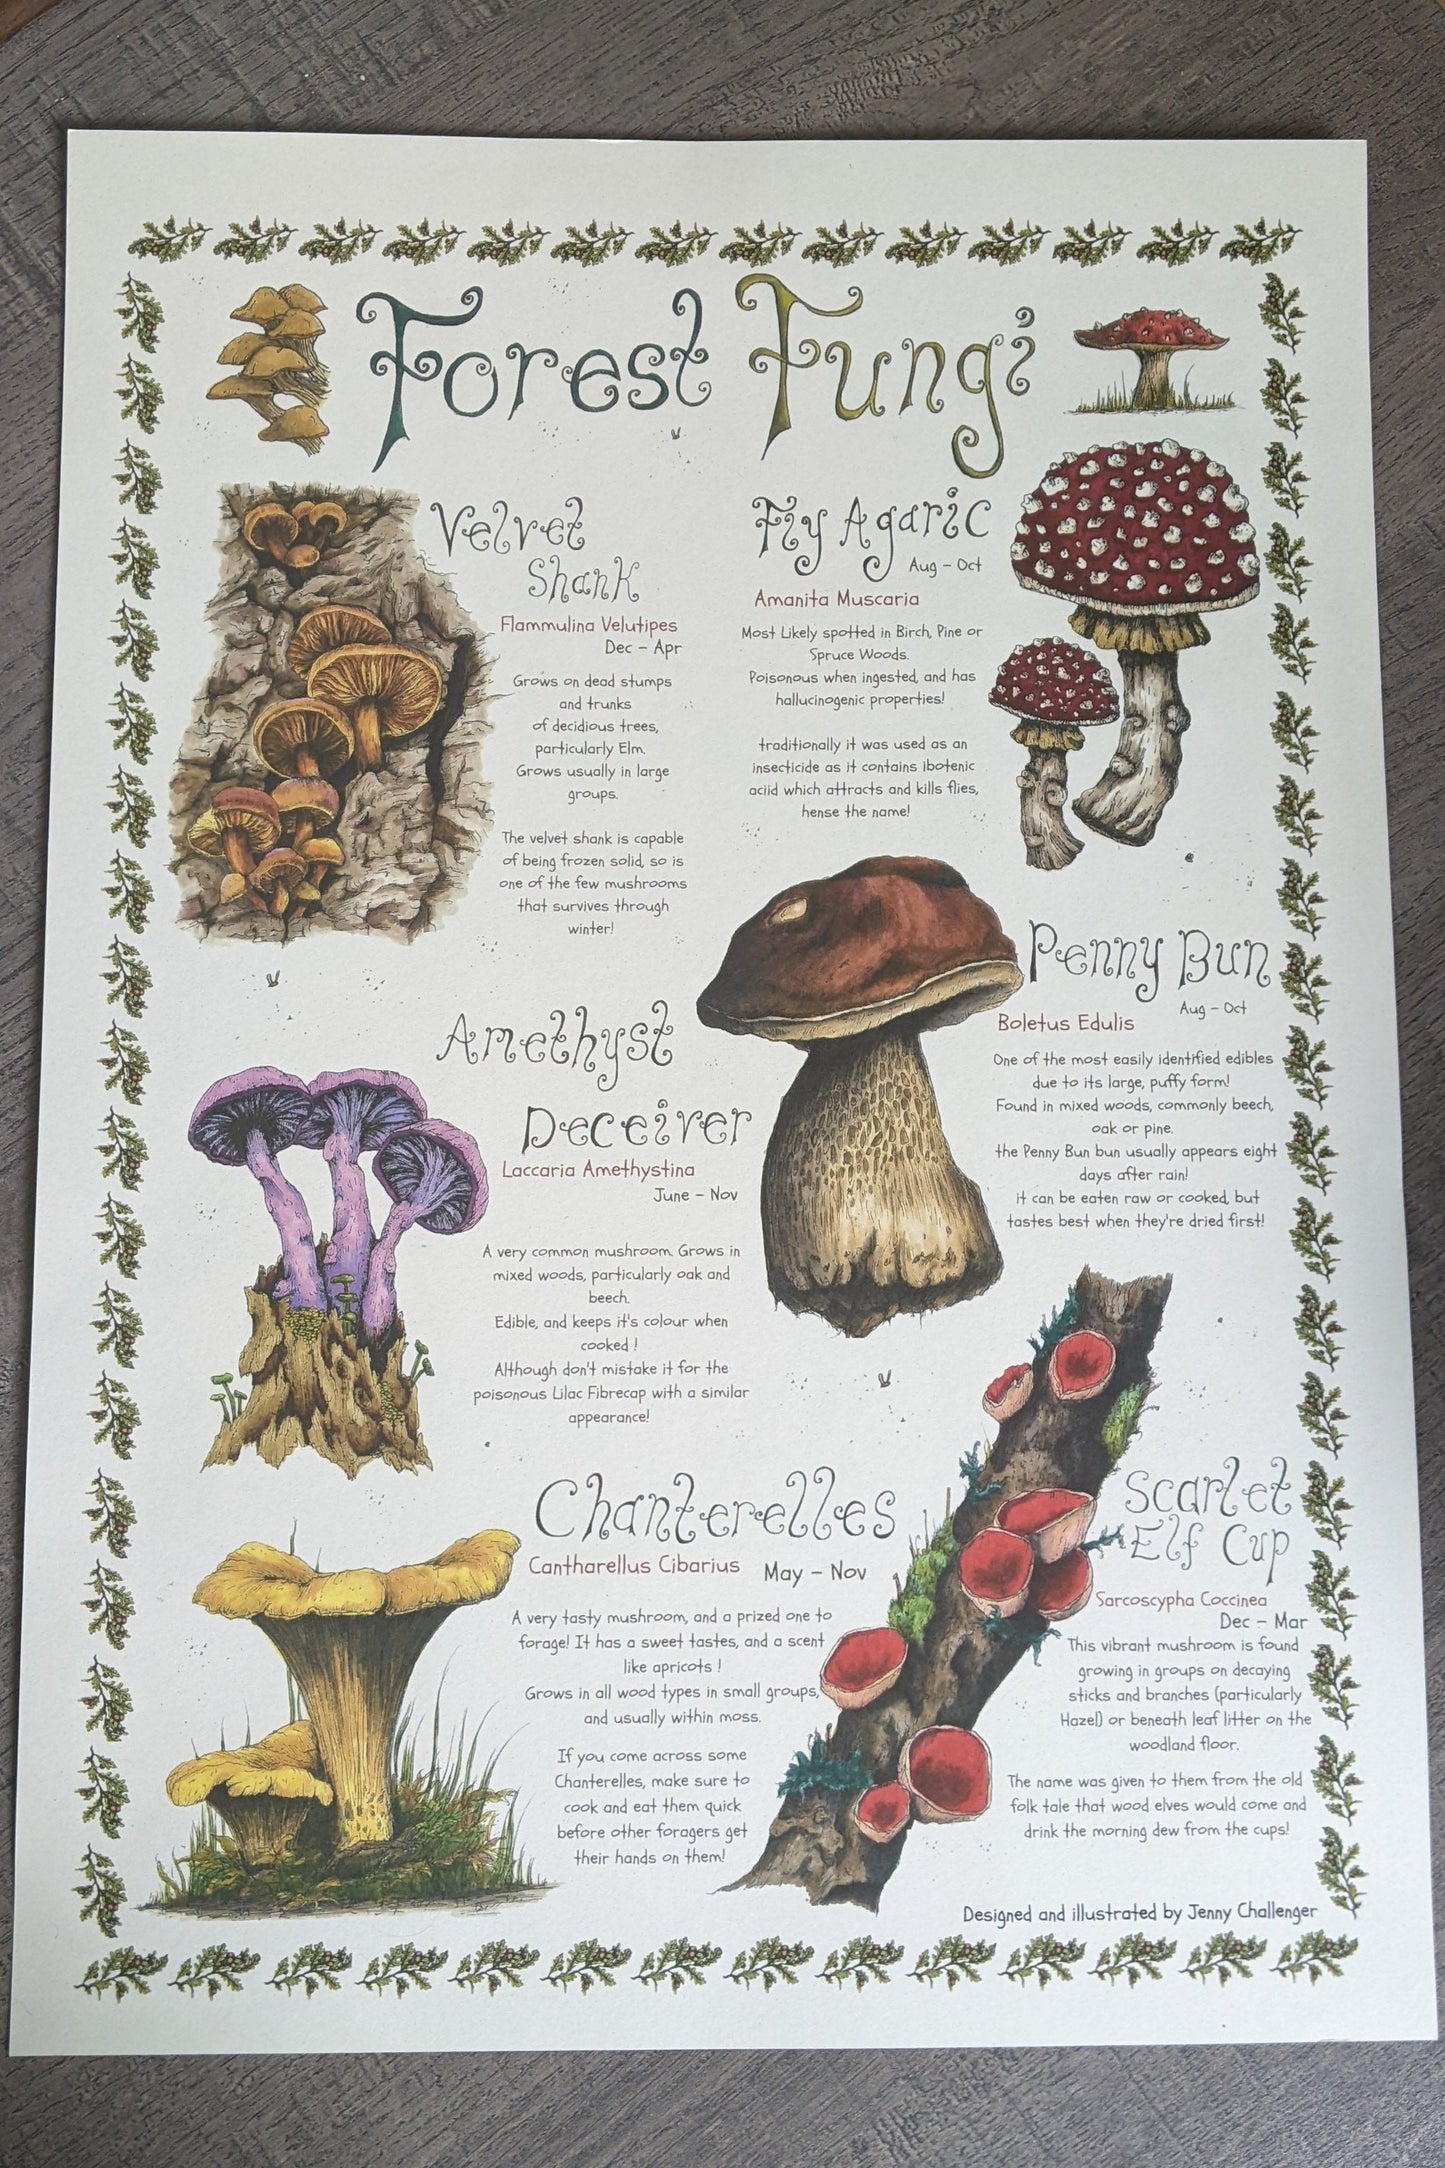 Forest Fungi
Velvet
Shank
Flammulina Velutipes
Dec – Apr
Grows on dead stumps
and trunks
of decidious trees,
particularly Elm.
Grows usually in large
groups.
The velvet shank is capable
of being frozen solid, so is
one of the few mushrooms
that survives through
winter!
Fly Agaric
Aug – Oct
Amanita Muscaria
Most Likely spotted in Birch, Pine or
Spruce Woods.
Poisonous when ingested, and has
hallucinogenic properties!
traditionally it was used as an
insecticide as it contains ibotenic
aciid which attracts and kills flies,
hense the name!
Penny Bun
Aug – Oct
Boletus Edulis
One of the most easily identified edibles
due to its large, puffy form!
Found in mixed woods, commonly beech,
oak or pine.
the Penny Bun bun usually appears eight
days after rain!
it can be eaten raw or cooked, but
tastes best when they're dried first!
Amethyst
Deceiver
Laccaria Amethystina
June – Nov
A very common mushroom. Grows in
mixed woods, particularly oak and
beech.
Edible, and keeps it's colour when
cooked !
Although don't mistake it for the
poisonous Lilac Fibrecap with a similar
appearance!
Chanterelles
Cantharellus Cibarius
May – Nov
A very tasty mushroom, and a prized one to
forage! It has a sweet tastes, and a scent
like apricots !
Grows in all wood types in small groups,
and usually within moss.
If you come across some
Chanterelles, make sure to
cook and eat them quick
before other foragers get
their hands on them!
Scarlet
Elf Cup
Sarcoscypha Coccinea
Dec – Mar
This vibrant mushroom is found
growing in groups on decaying
sticks and branches (particularly
Hazel) or beneath leaf litter on the
woodland floor.
The name was given to them from the old
folk tale that wood elves would come and
drink the morning dew from the cups!
Designed and illustrated by Jenny Challenger